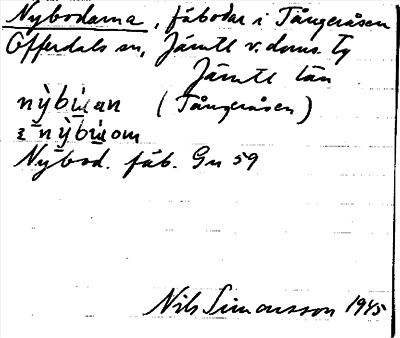 Nybodarna, fäbodar i Tångeråsen
Offerdals sn, Jämtl v. doms. Tg
Jämtl län
nỳbù̯an (Tångeråsen)
nỳbù̯om
Nybod. fäb. Gn 59
Nils Simonsson 1945